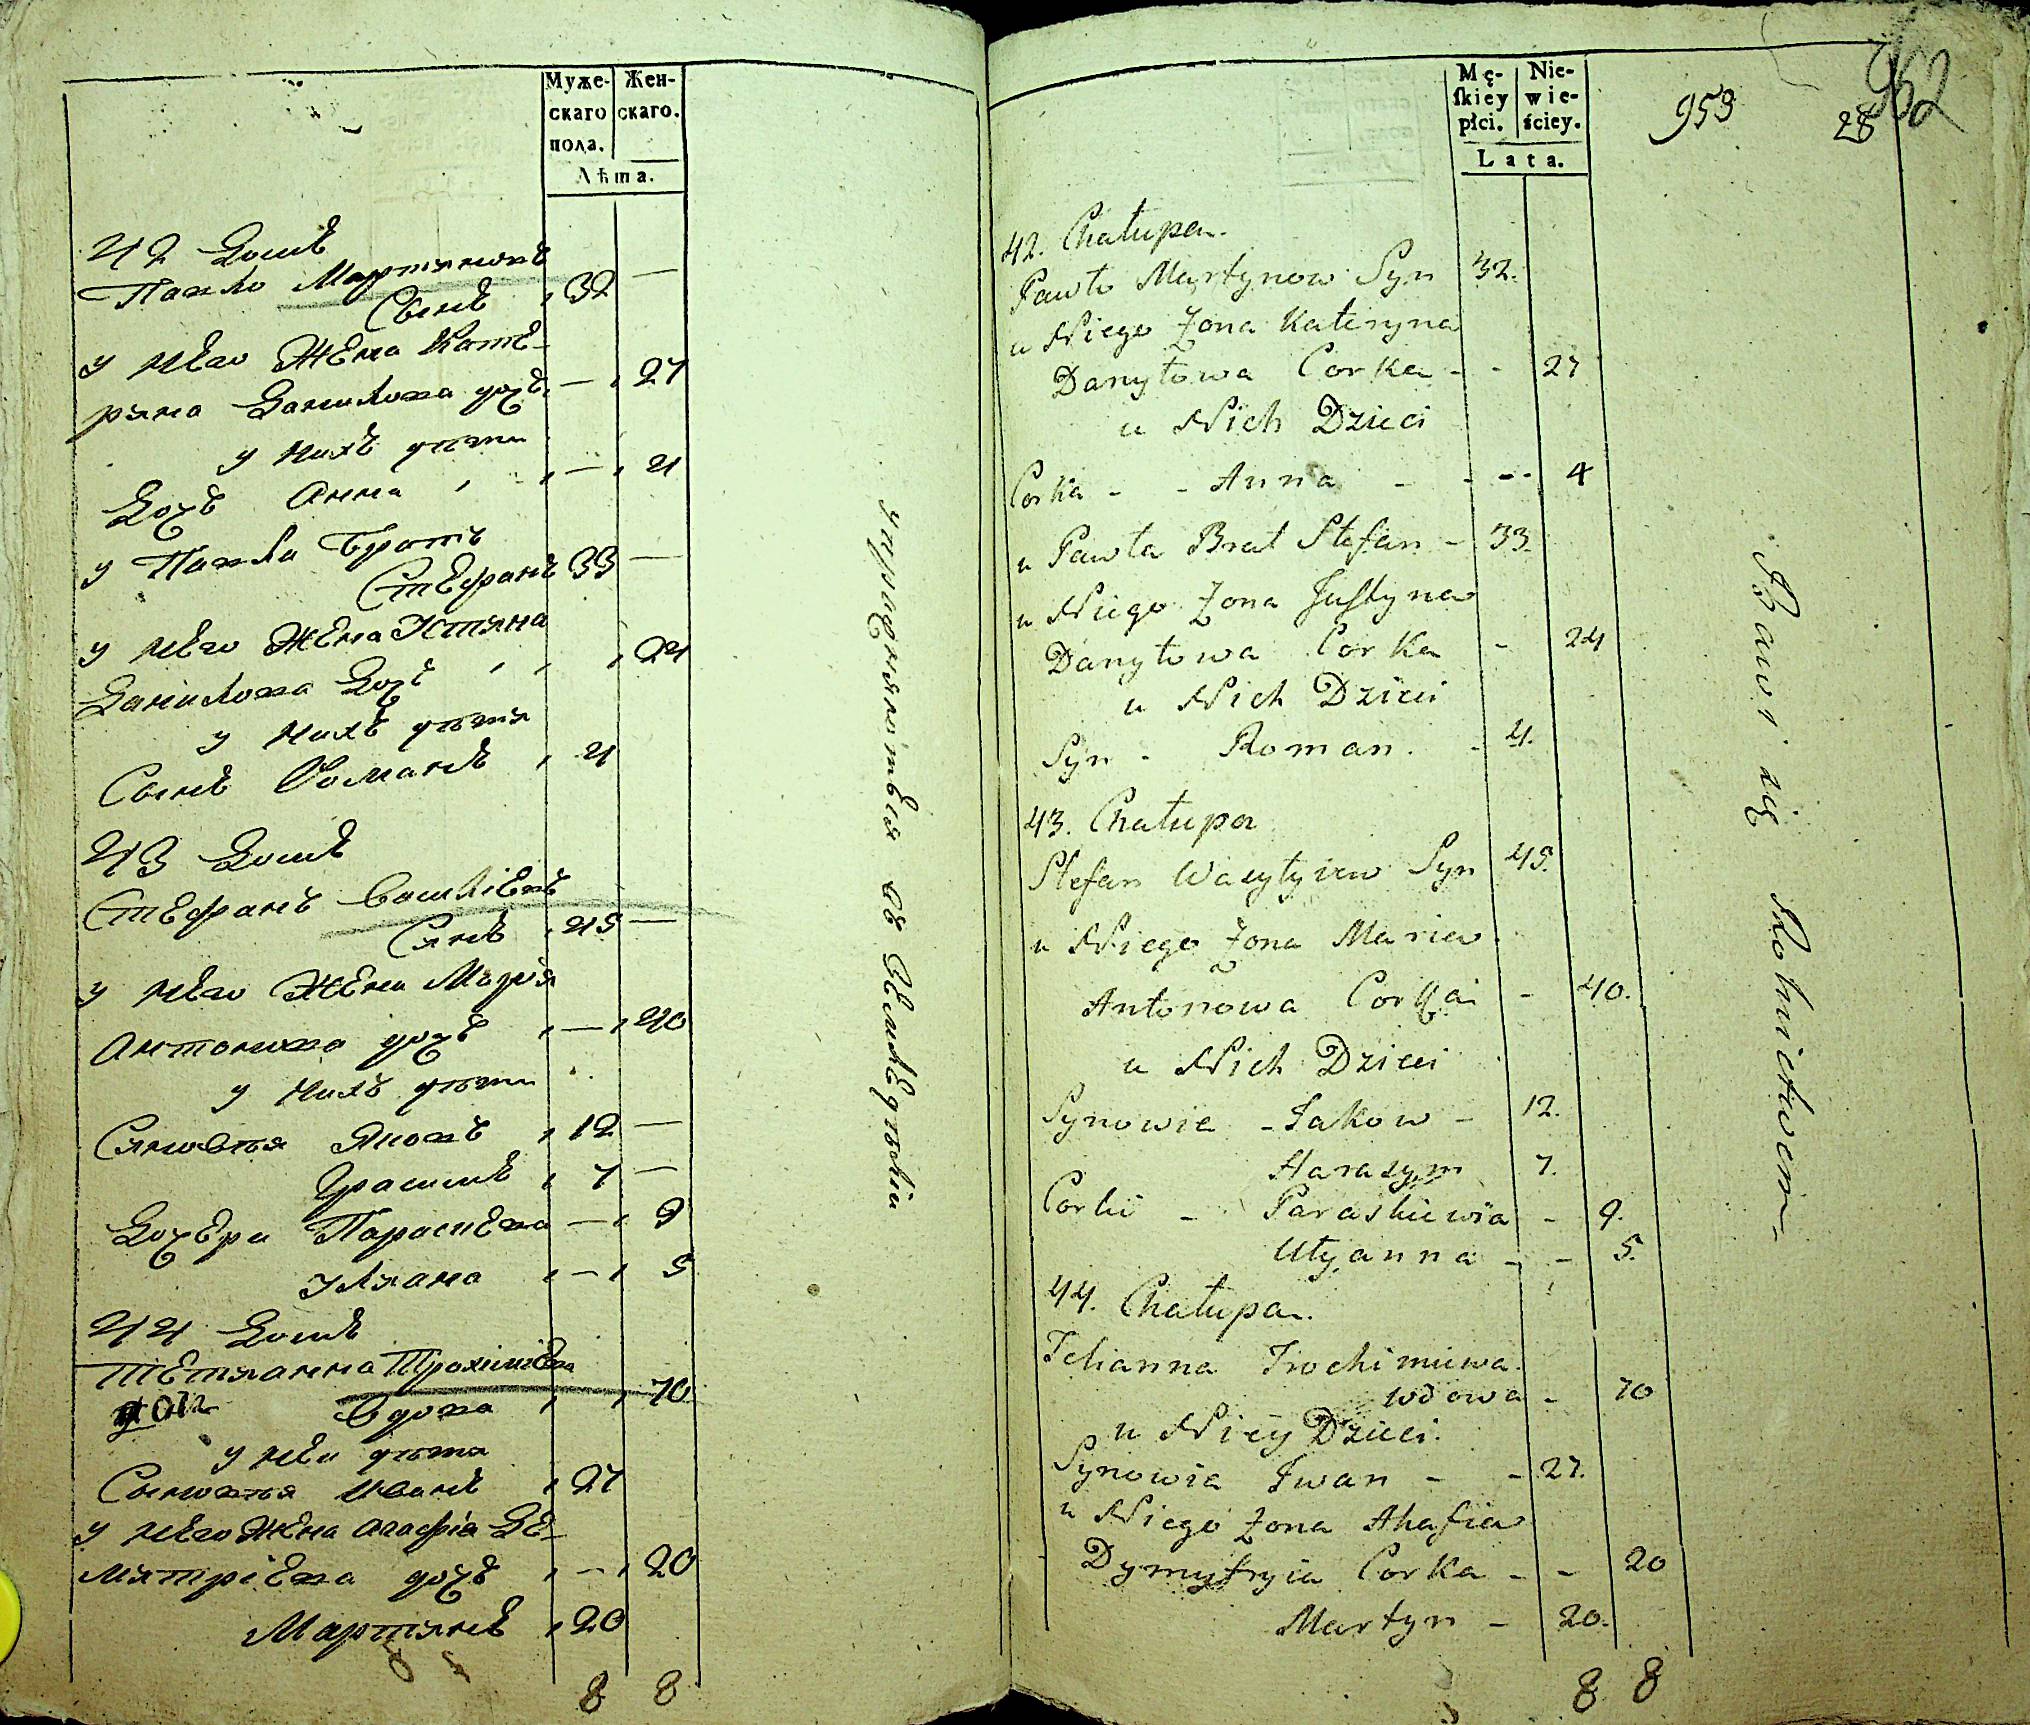 Муже-
скаго
пола.
Жен-
скаго.
Лѣта.
42 Домъ
Павло Мартыновъ
Сынъ 32 —
у него Жена Кате-
рына Данилова дочь — 27
у нихъ дѣти
Дочь Анна — 4
у Павла братъ
Стефанъ 33 —
у него Жена Устяна
Данилова Дочь 24
у нихъ дѣти
Сынъ Романъ 4
43 Домъ
Стефанъ Василіевъ
Сынъ 45 —
у него Жена Марія
Антонова дочь — 40
у нихъ дѣти
Сыновья Яковъ 12 —
Грасимъ 7 —
Дочери Параскева — 9
Уляна — 5
44 Домъ
Тетянна Трохимова
вдова 70
у неи дѣти
Сыновья Иванъ 27
у него Жена Агафія Де-
митріева дочь — 20
Мартынъ 20
8 8
упражняются въ Земледѣліи
Mę-
skiey
płci.
Nie-
wie-
ściey.
Lata.
959
28
952
42. Chałupa.
Pawło Martynow Syn 32.
u Niego Żona Kateryna
Danyłowa Corka - - 27
u Nich Dzieci
Corka - - Anna - - -- 4
u Pawła Brat Stefan - 33.
u Niego Żona Justyna
Danyłowa Corka - 24
u Nich Dzieci
Syn - Roman. - 4.
43. Chałupa
Stefan Wasylyiew Syn 45.
u Niego Żona Maria
Antonowa Corka - 40.
u Nich Dzieci
Synowie - Jakow - 12.
Harasym 7.
Corki - Paraskiewia - 9.
Ulyanna - - 5.
44. Chałupa.
Tetianna Trochimiewa
wdowa - 70
u Niey Dzieci.
Synowie Iwan - - 27.
u Niego Żona Ahafia
Dymytryia Corka - - 20
Martyn - 20.
8 8
Bawi się Rolnictwem